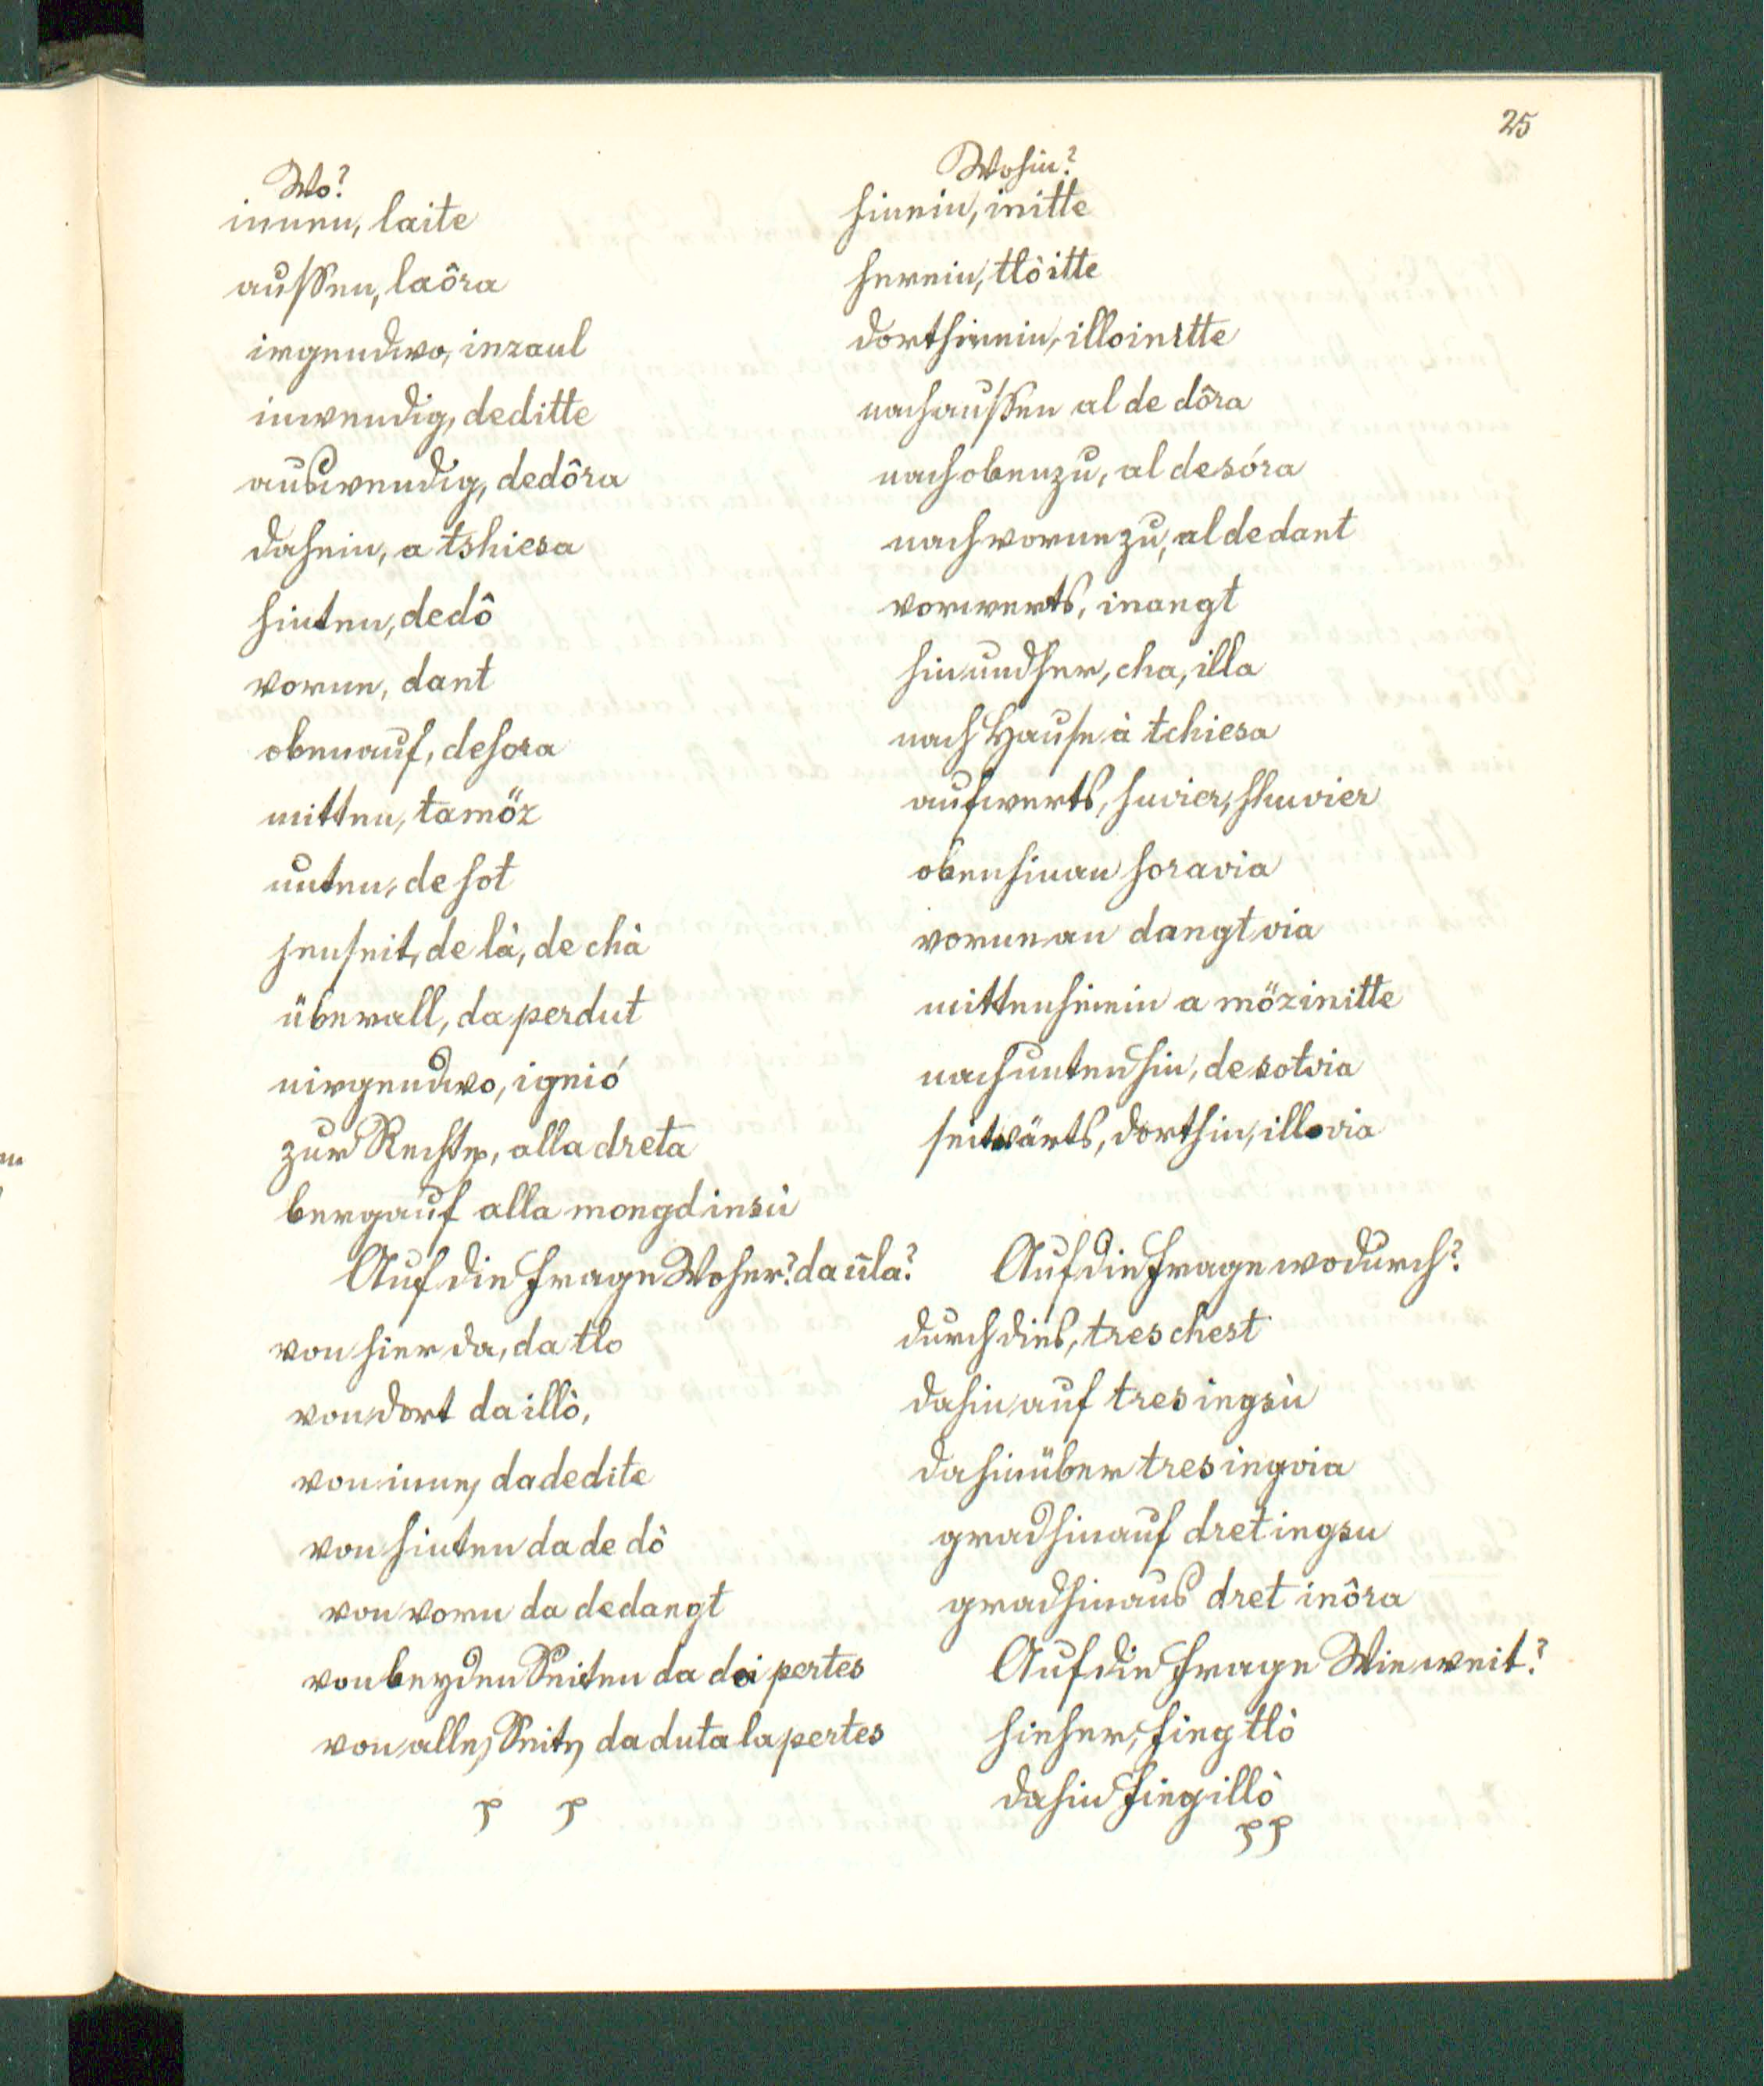 25
Wo?
innen, laite
aussen, laôra
irgendwo, inzaul
inwendig, deditte
auswendig, dedôra
daheim, a tshiesa
hinten, dedô
vorne, dant
obenauf, desora
mitten, tamöz
unten, de sot
jenseit, de là, de chà
überall, da perdut
nirgendwo, ignió
zur Rechten, alla dreta
bergauf alla mongd insù
Auf die Frage Woher? da ūla?
von hier da, da tlo
von dort da illò,
von innen dadedite
von hinten da de dô
von vorn da dedangt
von beyden Seiten da doi pertes
von allen Seiten da duta la pertes
p p
Wohin?
hinein, initte
herein, tlò itte
dorthinein, illoinitte
nach aussen al de dôra
nach oben zu, al desóra
nach vorne zu, al dedant
vorwerts, inangt
hin und her, cha, illa
nach Hause à tchiesa
aufwerts, suvier, shuvier
obenhinan soravia
vornean dangt via
mittenhinein a mözinitte
nach unten hin, de sotvia
seitwärts, dorthin, illovia
Auf die Frage wodurch?
durch dies, tres chest
dahinauf tres ingsù
dahinüber tres ingvia
grad hinauf dret ingsu
grad hinaus dret inôra
Auf die Frage Wie weit?
hieher, fing tlò
dahin fing illò
pp